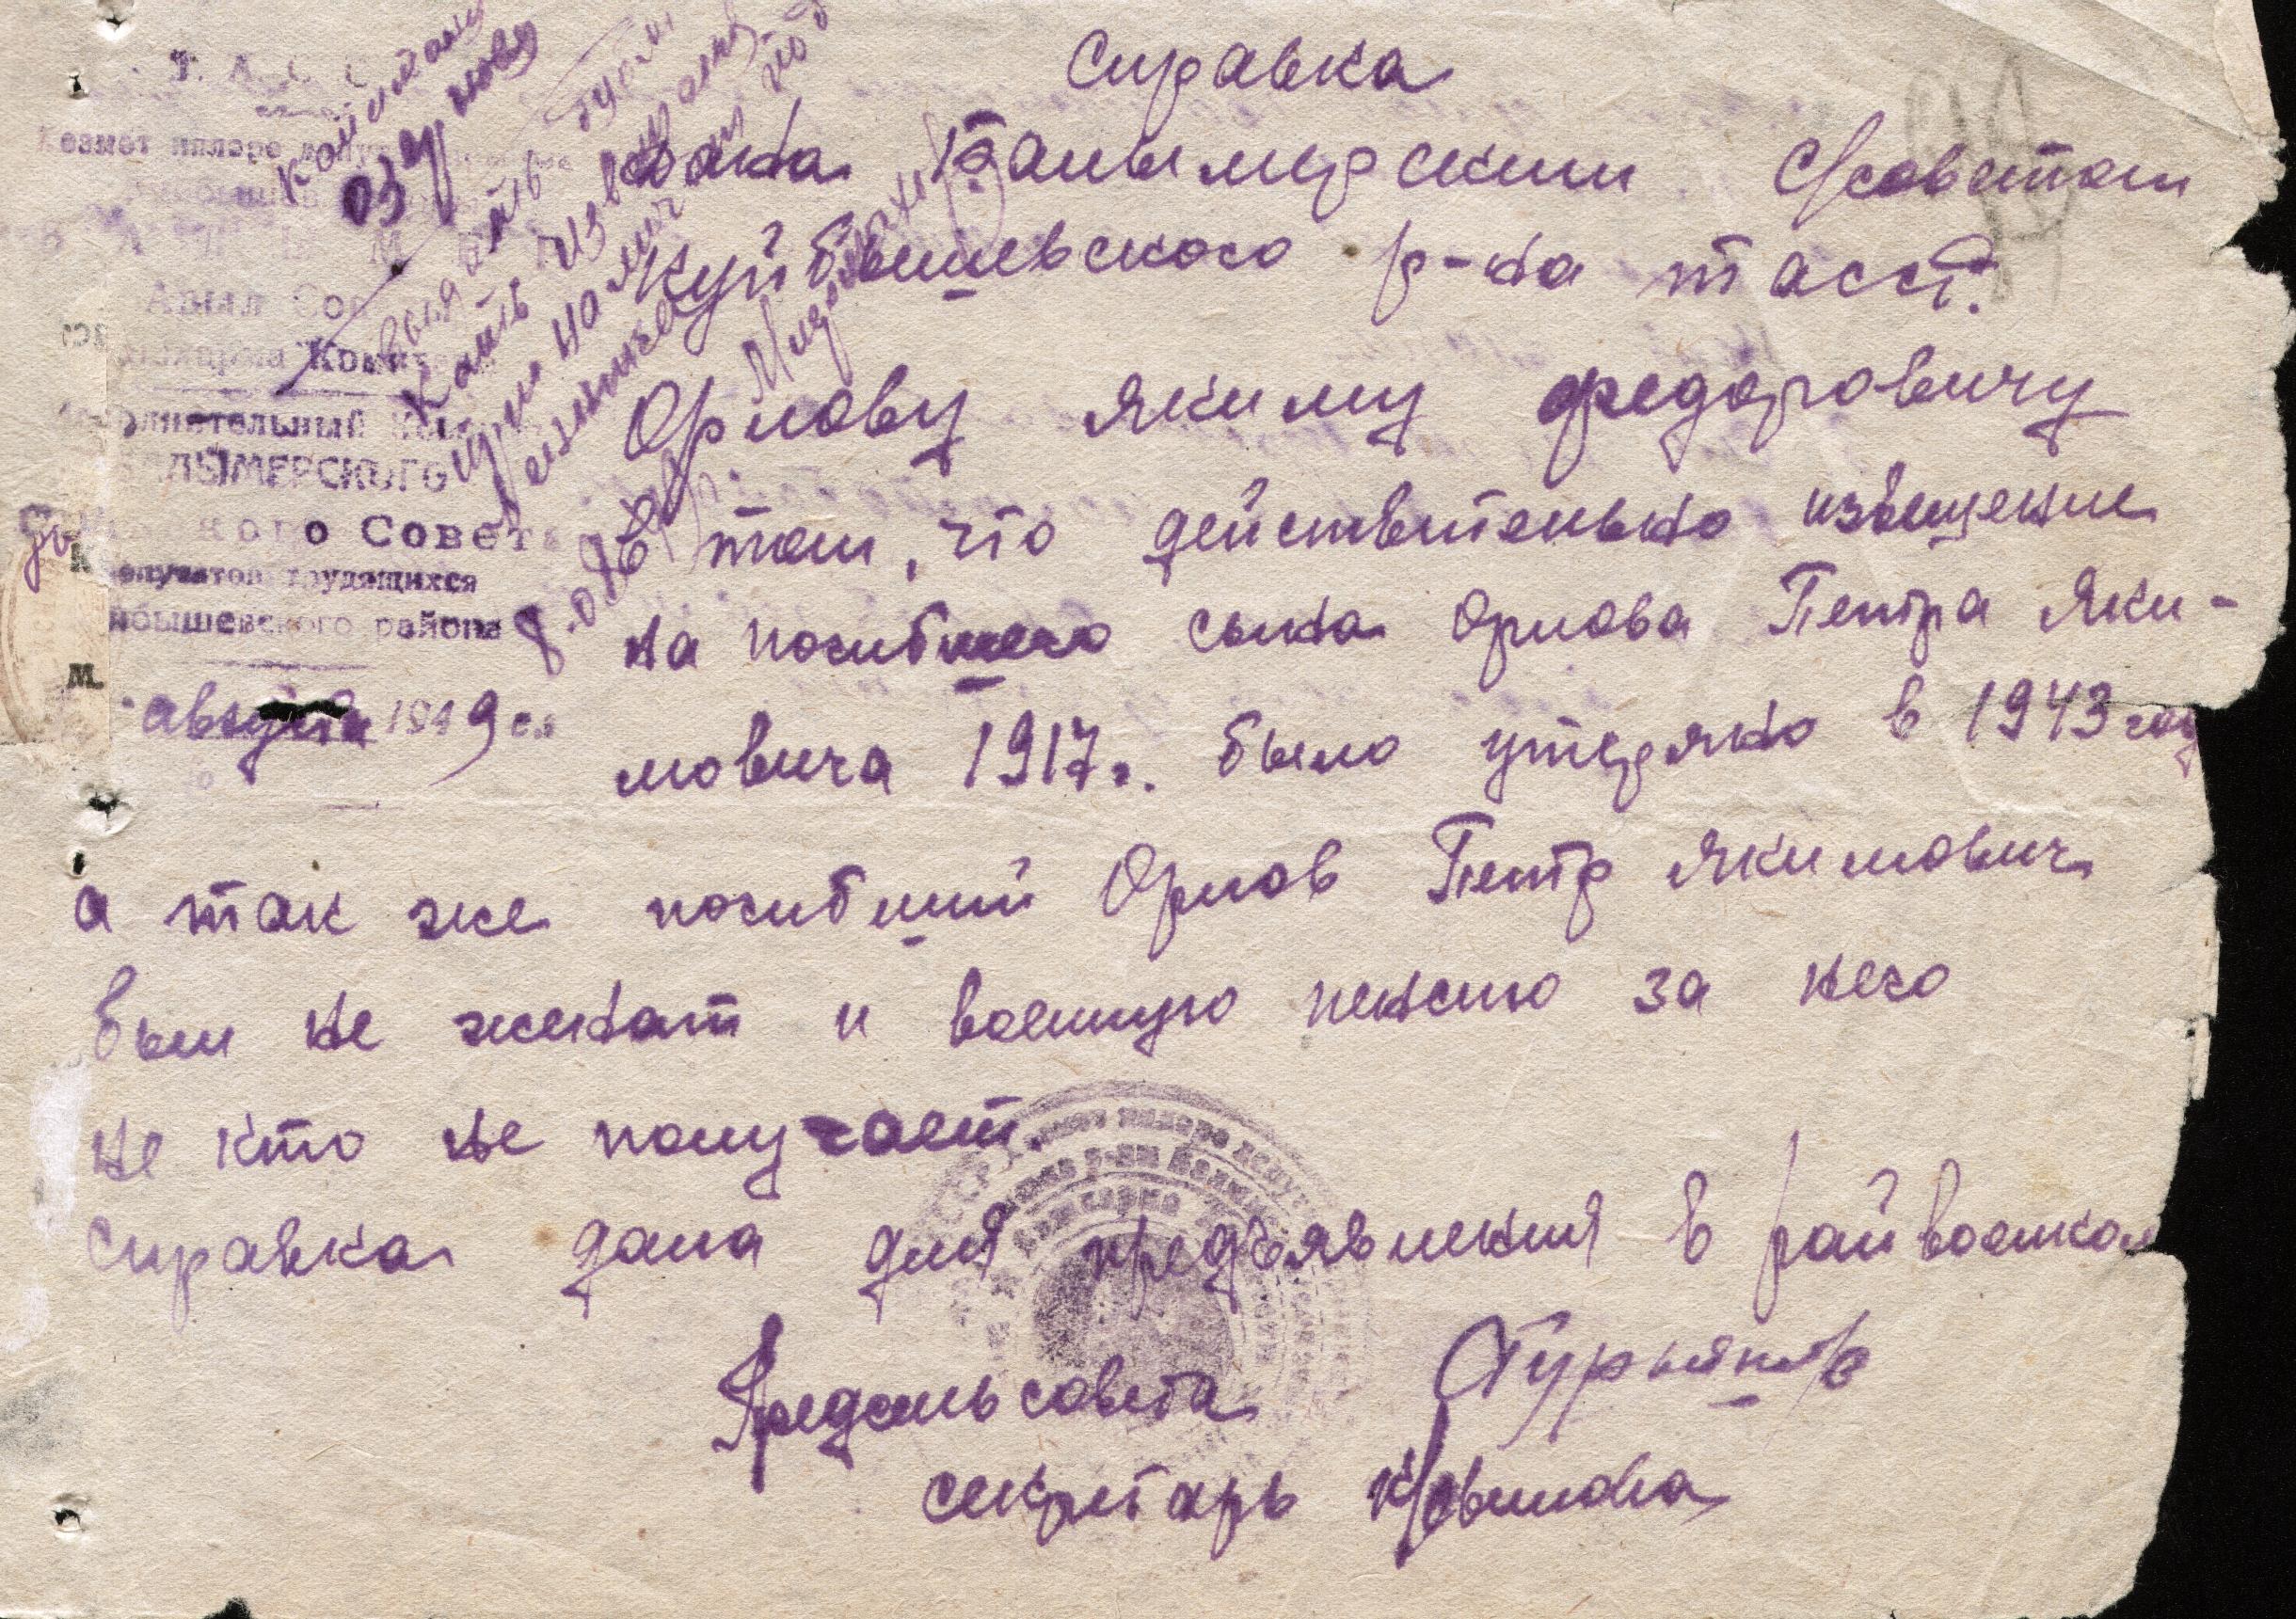 Справка
дана Балымерским С/советом
Куйбышевского р-на тасср.
Орлову Якиму Федоровичу
в том, что действительно извещение
на погибшего сына Орлова Петра Яки-
мовича 1917 г. было утеряно в 1943 году
а так же погибший Орлов Петр Якимович
был не женат и военную пенсию за него
не кто не получает.
Справка дана для предъявления в райвоенком
Предсельсовета
секретарь
Комит
лнительный Ком
ЛЫМЕРСКОГО
кого Совета
депутатов трудящихся
йбышевского района
августа 1949 г.
Капитану
выслать
извещ